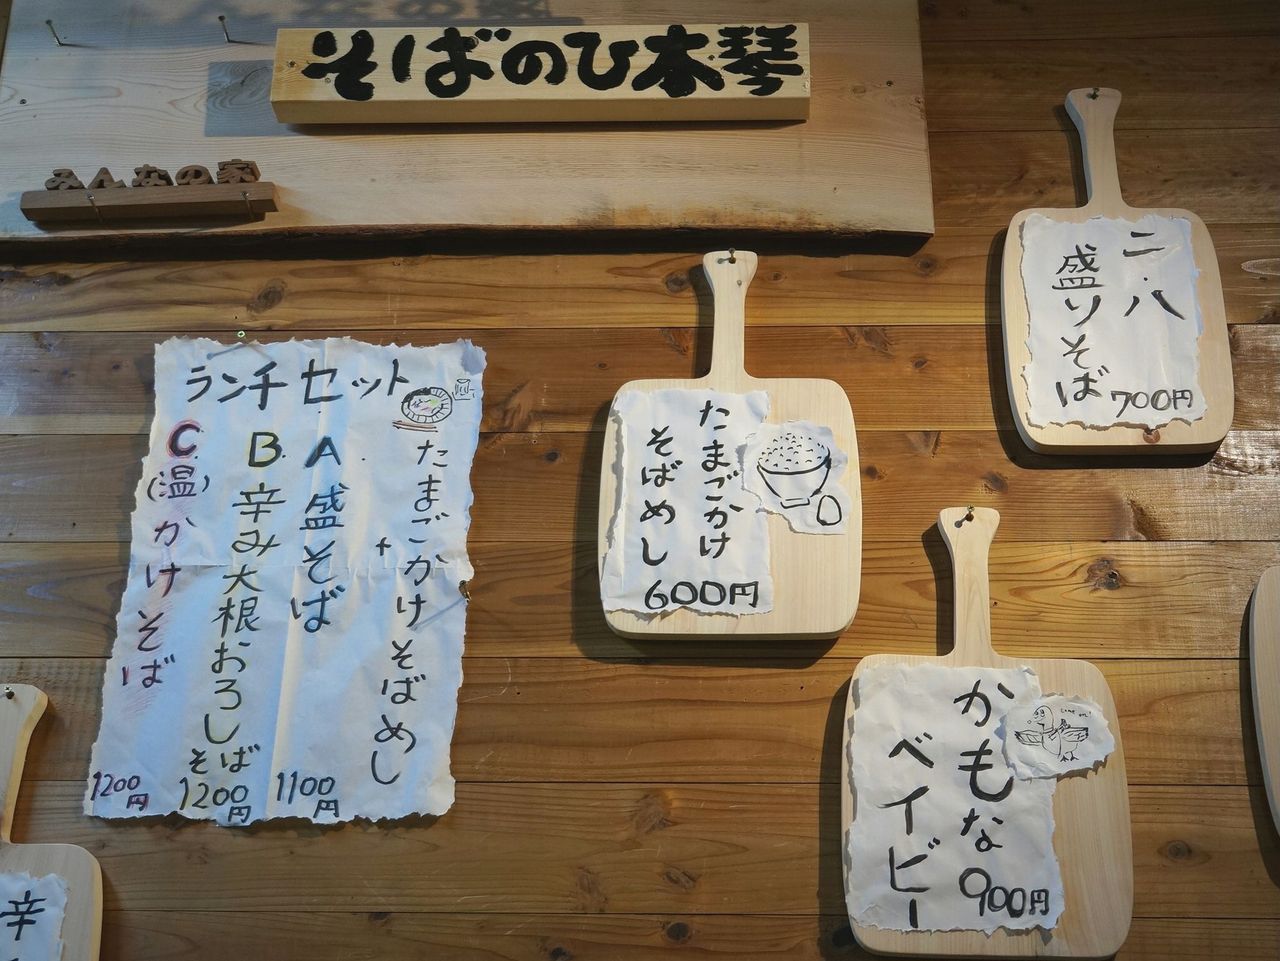 そばのひ木琴
みんなの家
二・八
盛りそば
700円
たまごかけ
そばめし
600円
ランチセット
たまごかけそばめし
+
A 盛そば
1100円
B 辛み大根おろしそば
1200円
C (温)かけそば
1200円
かもな
ベイビー
900円
辛